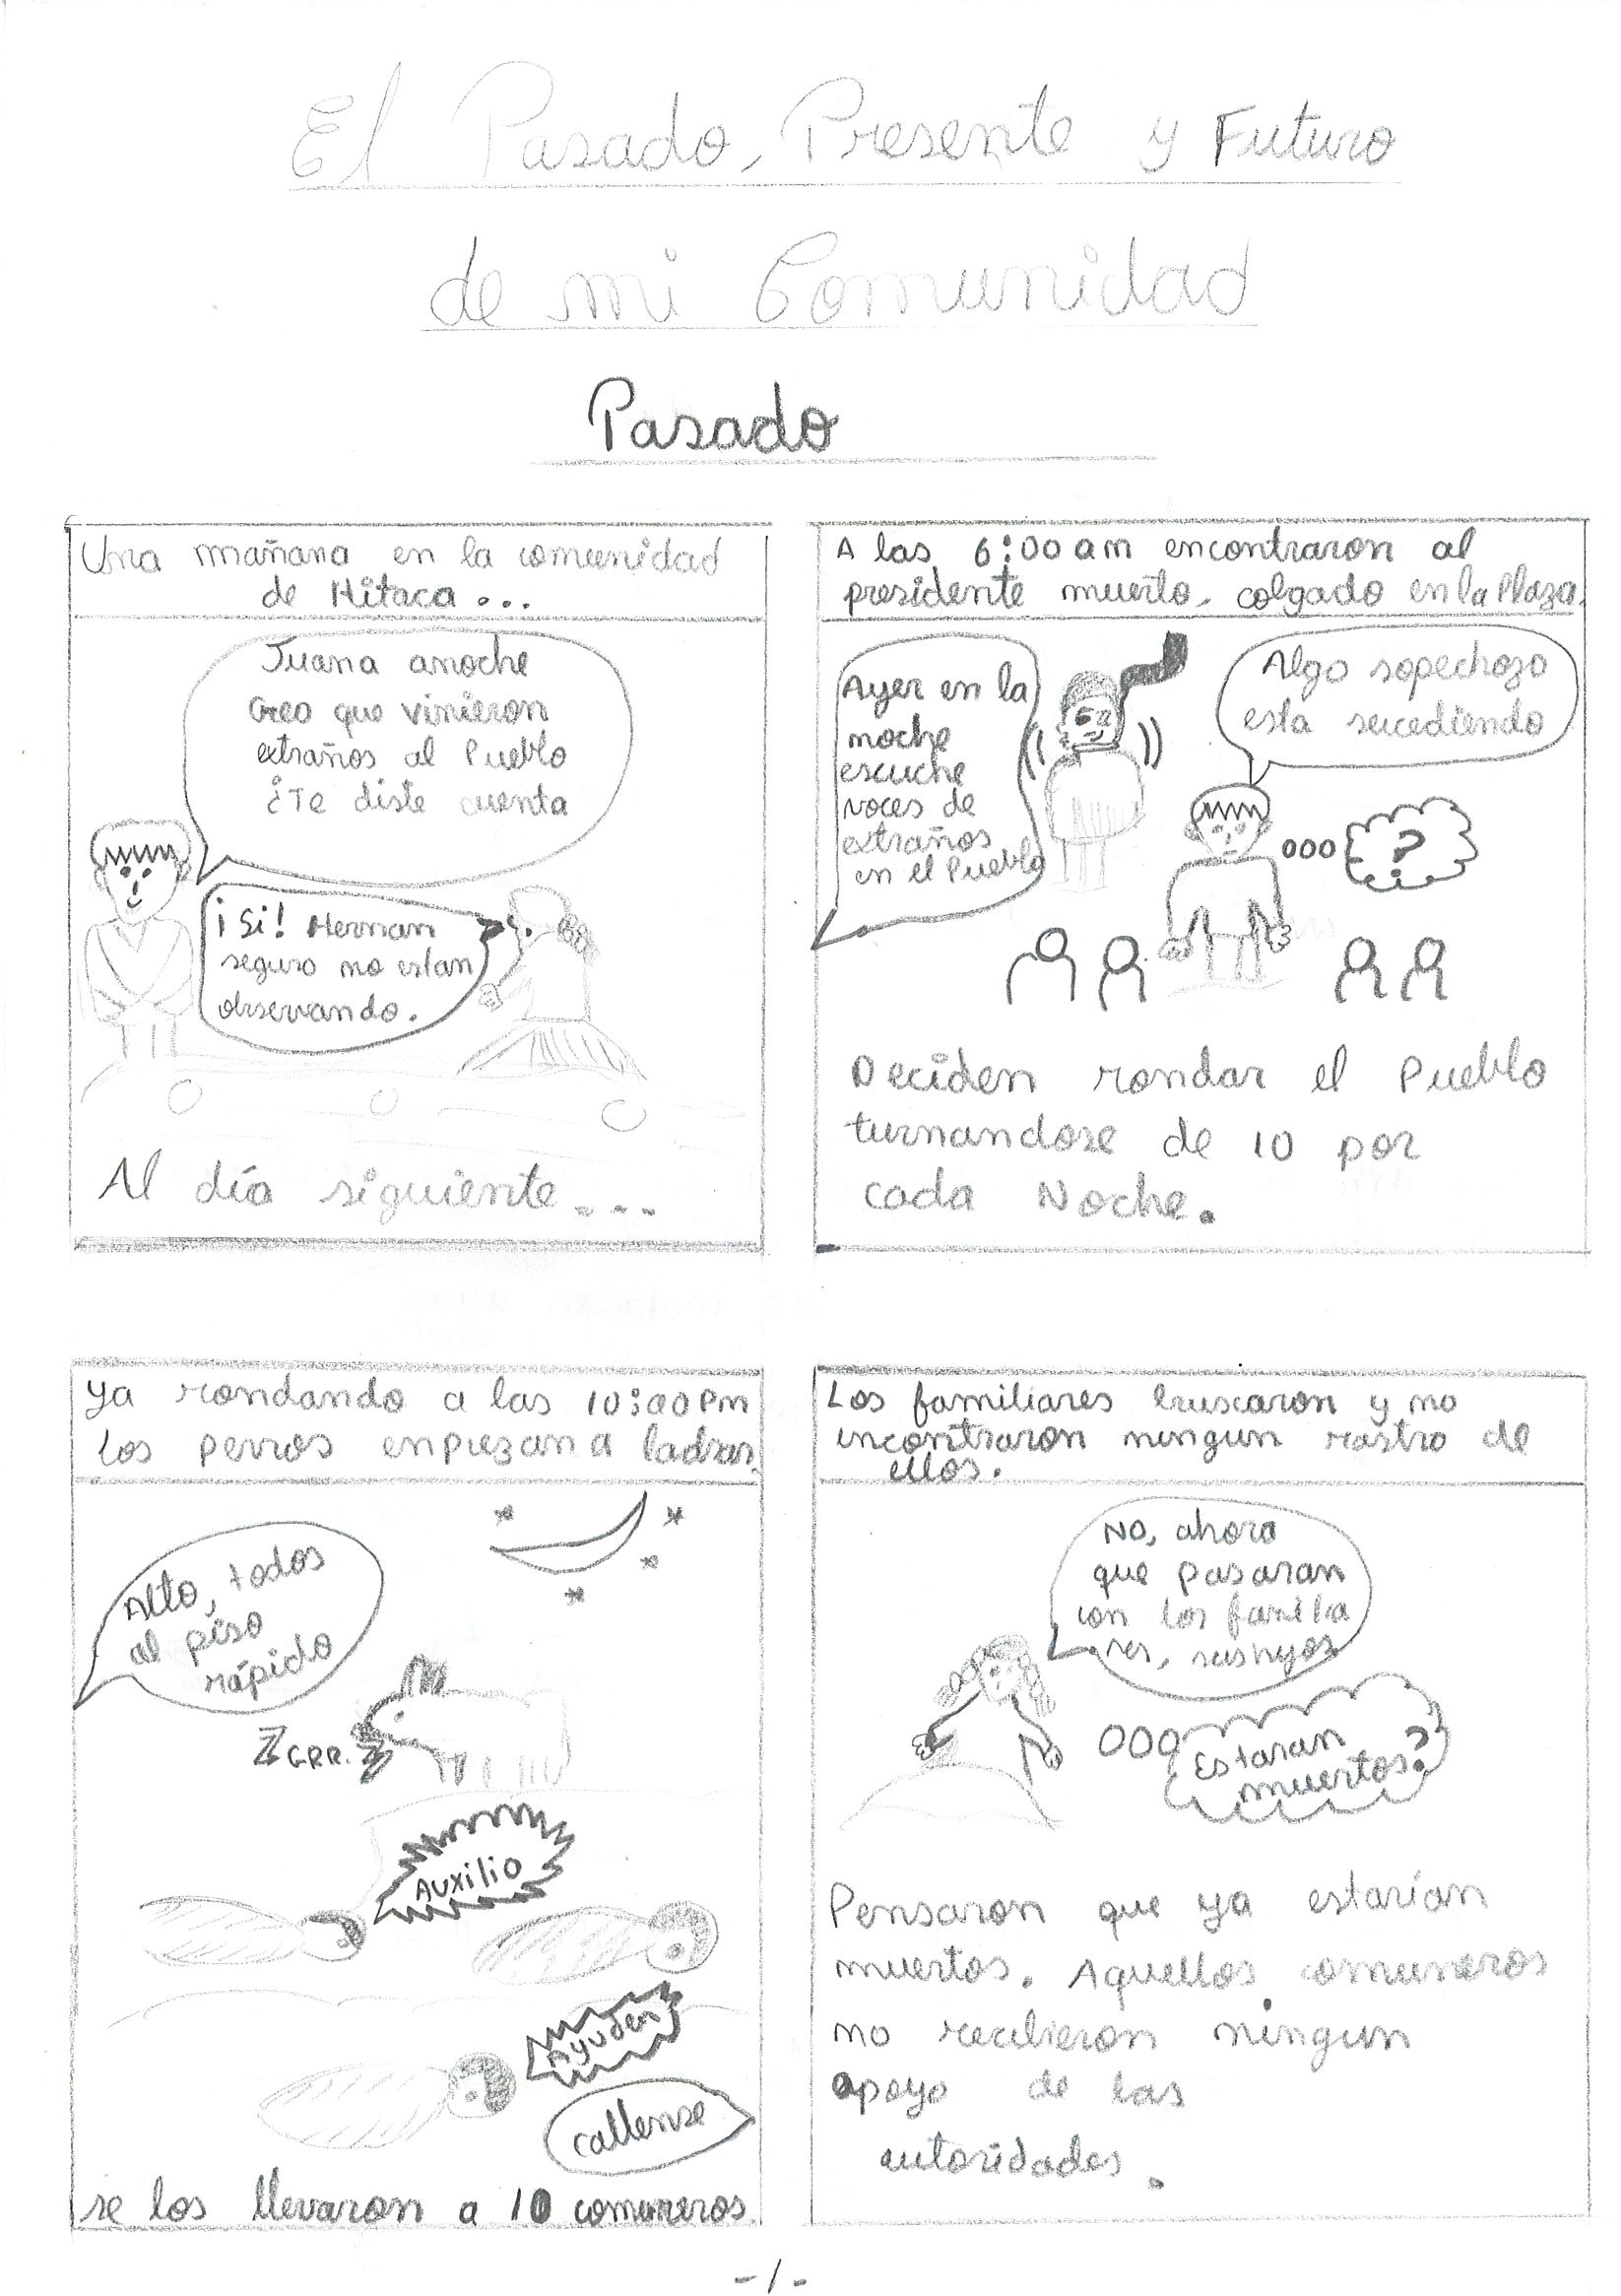 El Pasado, Presente y Futuro
de mi Comunidad
Pasado
Una mañana en la comunidad
de Hitaca...
Juana anoche
creo que vinieron
extraños al Pueblo
¿Te diste cuenta
¡Si! Hernan
seguro no estan
observando.
Al día siguiente...
A las 6:00 am encontraron al
presidente muerto, colgado en la Plaza.
Ayer en la
noche
escuche
voces de
extraños
en el Pueblo
Algo sopechozo
esta sucediendo
?
Deciden rondar el Pueblo
turnandose de 10 por
cada Noche.
Ya rondando a las 10:00 Pm
los perros enpiezan a ladrar.
Alto, todos
al piso
rápido
Z GRR.
Auxilio
Ayuden
callense
se los llevaron a 10 comuneros.
Los familiares buscaron y no
encontraron ningun rastro de
ellos.
No, ahora
que pasaran
con los familia
res, sus hijos
Estaran
muertos?
Pensaron que ya estarían
muertos. Aquellos comuneros
no recibieron ningun
apoyo de las
autoridades.
-1-